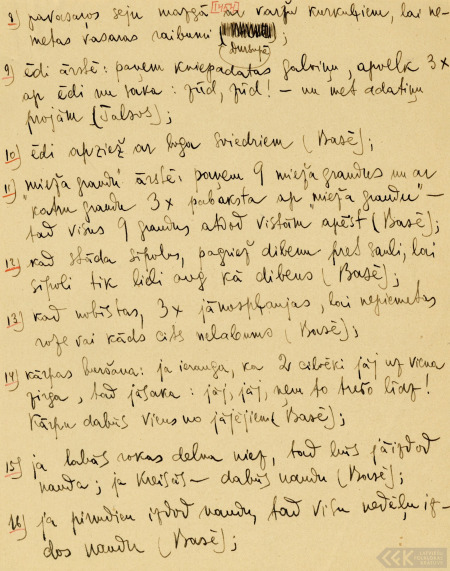 [1457]
8) pavasaros seju mazgā ar varžu kurkuļiem, lai ne-
metas vasaras raibumi
Durbupē ;
9) ēdi ārstē: paņem kniepadatas galviņu, apvelk 3x
ap ēdi un saka: zūd, zūd! – un met adatiņu
projām (Talsos);
10) ēdi apziež ar loga sviedriem (Basē);
11) "mieža graudu" ārstē: paņem 9 mieža graudus un ar
katru graudu 3x pabaksta ap "mieža graudu" –
tad visus 9 graudus atdod vistām apēst (Basē);
12) kad stāda sīpolus, pagriež dibenu pret sauli, lai
sīpoli tik lieli aug kā dibens (Basē);
13) kad nobīstas, 3x jānospļaujas, lai nepiemetas
roze vai kāds cits nelabums (Basē);
14) kārpas buršana: ja ierauga, ka 2 cilvēki jāj uz viena
zirga, tad jāsaka: jāj, jāj, ņem to trešo līdz!
Kārpu dabūs viens no jājējiem (Basē);
15) ja labās rokas delna niez, tad būs jāizdod
nauda; ja kreisās – dabūs naudu (Basē);
16) ja pirmdien izdod naudu, tad visu nedēļu iz-
dos naudu (Basē);